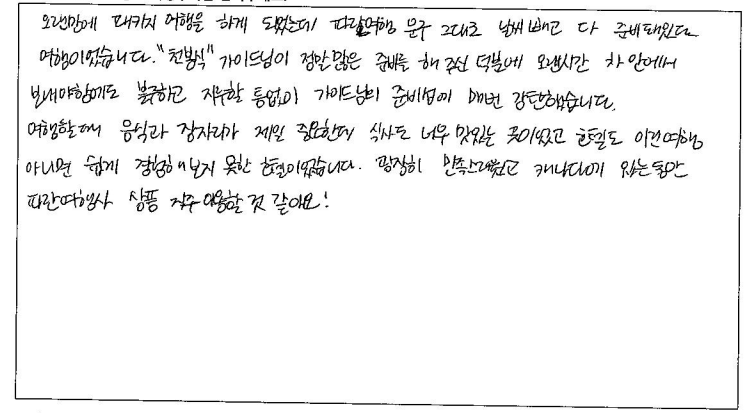 오랜만에 패키지 여행을 하게 되었는데 파란여행 문구 그대로 날씨 빼고 다 준비돼있는
여행이었습니다. "천봉식" 가이드님이 정말 많은 준비를 해 주신 덕분에 오랜시간 차 안에서
보내야함에도 불구하고 지루할 틈없이 가이드님의 준비성에 매번 감탄했습니다.
여행할때 음식과 잠자리가 제일 중요한데 식사도 너무 맛있는 곳이었고 호텔도 이런여행
아니면 쉽게 경험해보지 못한 호텔이었습니다. 굉장히 만족스러웠고 캐나다에 있는동안
파란여행사 상품 자주 이용할 것 같아요!